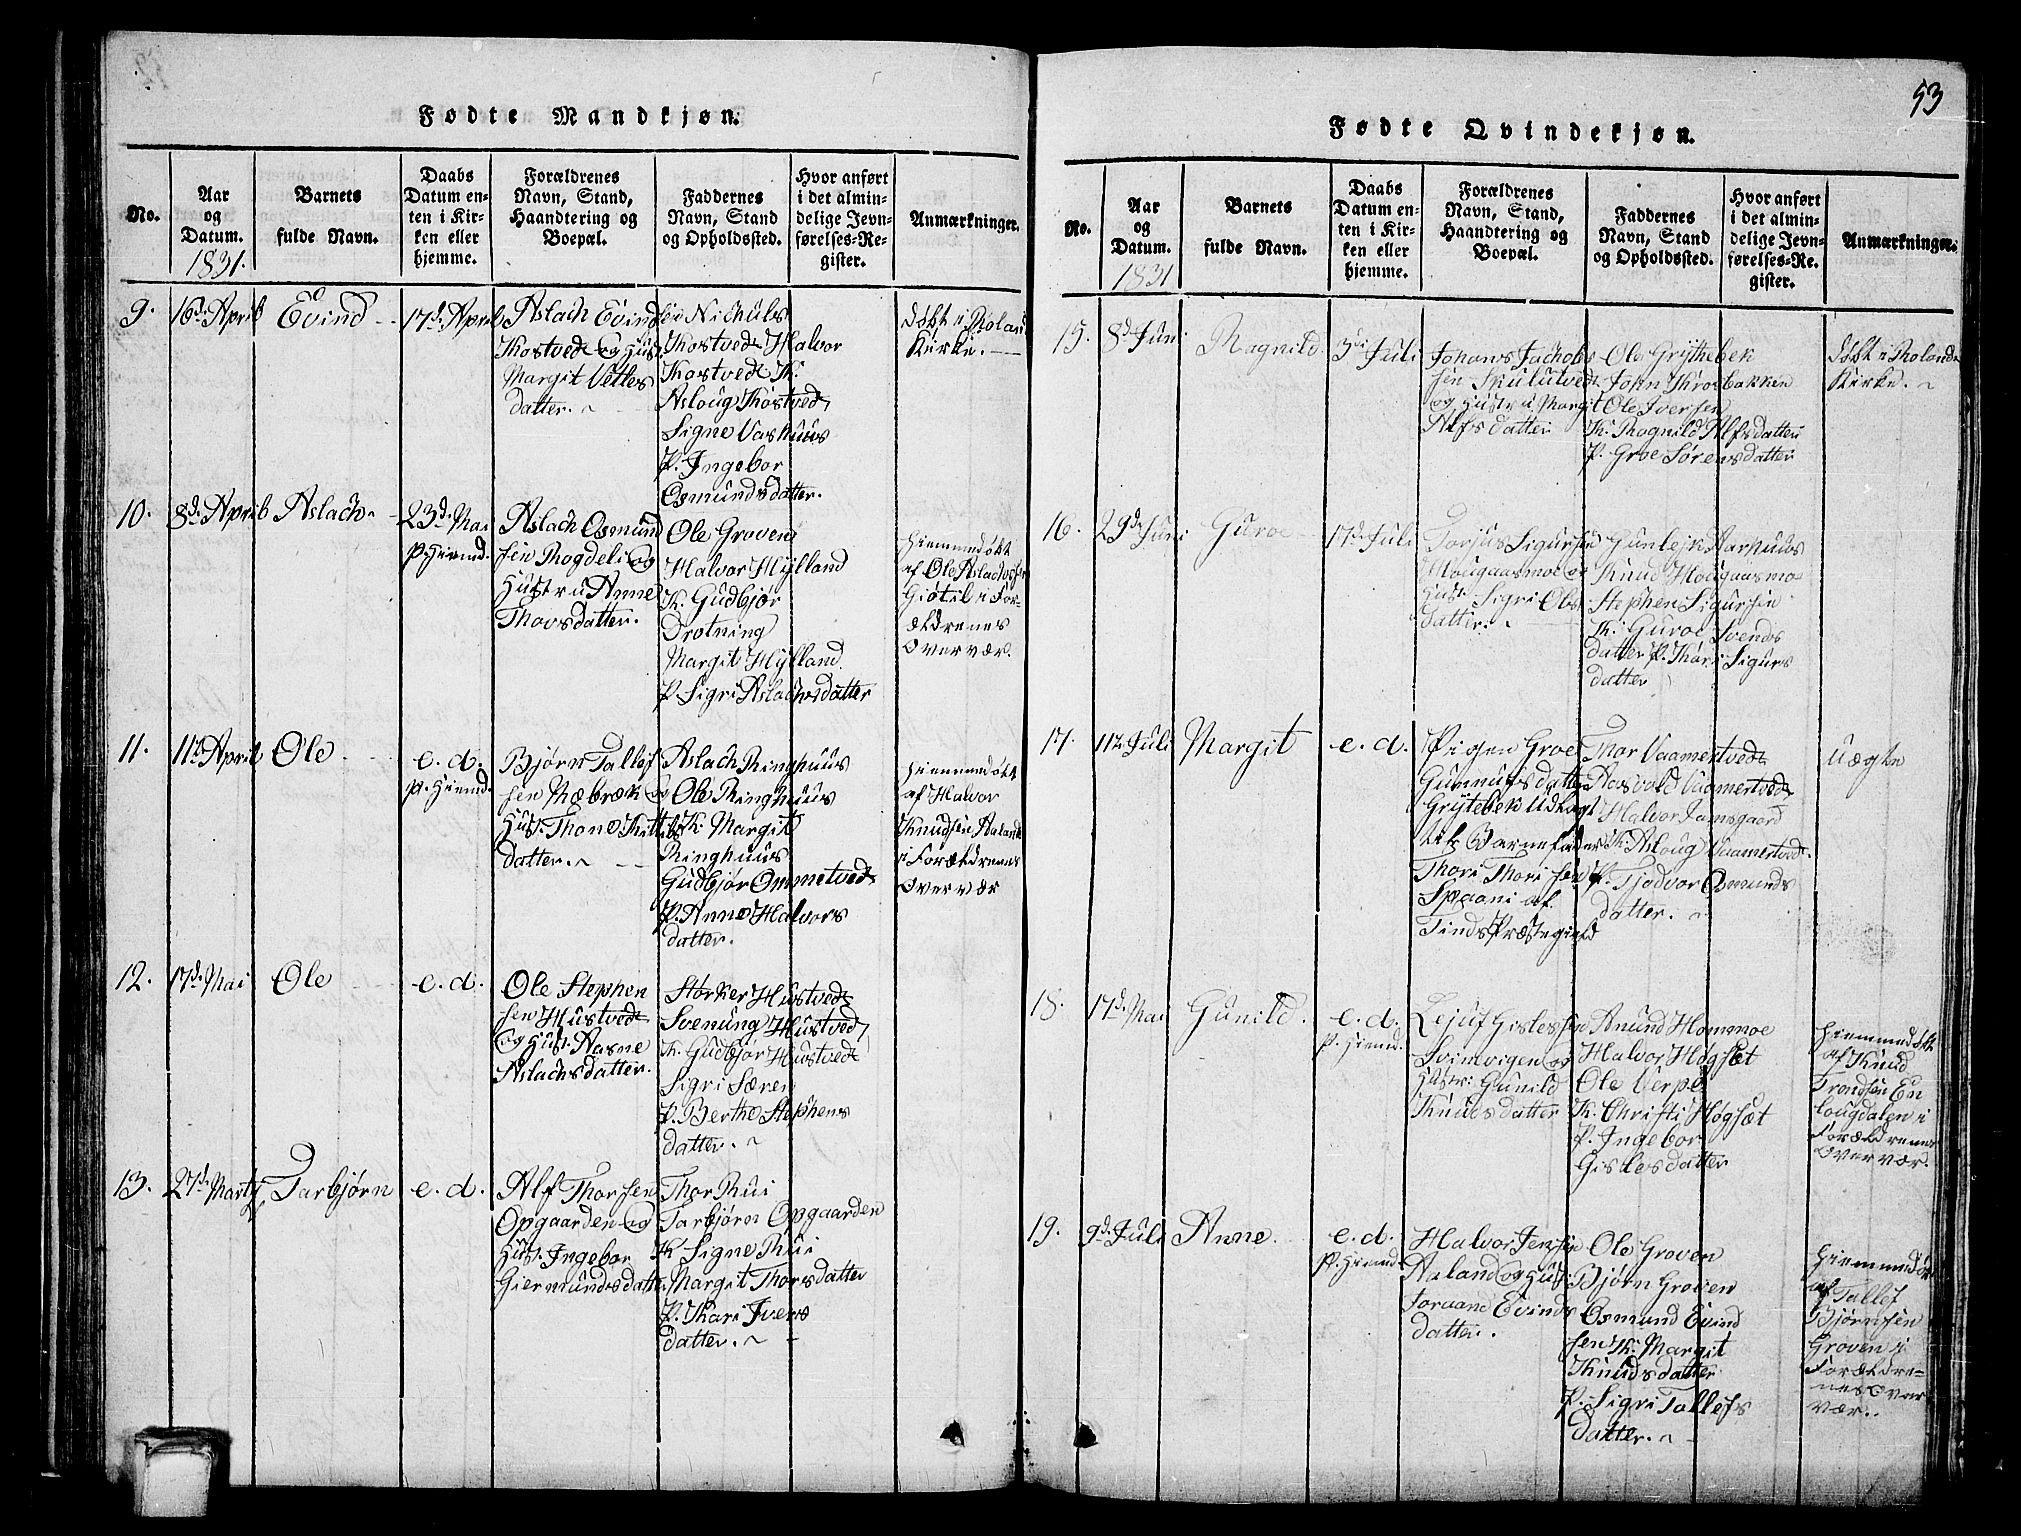 Fødte Mandkjøn.
No.
Aar
og
Datum.
1831.
Barnets
fulde Navn.
Daabs
Datum en-
ten i Kir-
ken eller
hjemme.
Forældrenes
Navn, Stand,
Haandtering og
Boepæl.
Faddernes
Navn, Stand
og Opholdssted.
Hvor anført
i det almin-
delige Jevn-
førelses-Re-
gister.
Anmærkninger.
9.
16d. April
Evind
17d. April
Aslach Evind
Kostvedt og Hust.
Margit Vetles
datter.
Nichuls
Kostvedt Halvor
Kostvedt K.
Asloug Kostvedt
Signe Vashuus
P. Ingebor
Osmundsdatter.
døbt i Roland
Kirke.
10.
8d. April
Aslach
23d. Mai
p. Hiemd.
Aslach Osmund
sen Rogdeli og
Hustru Anne
Thovsdatter.
Ole Groven
Halvor Hylland
K. Gudbjør
Drotning
Margit Hylland
P. Sigri Aslachsdatter
Hiemmedøbt
af Ole Aslachsen
Giøtil i For-
ældrenes
Overvær.
11.
11te April
Ole
e. d.
p. Hiemd.
Bjørn Tallef
sen Mæbræk og
Hust. Thone Kittils
datter.
Aslach Ringhuus
Ole Ringhuus
K. Margit
Ringhuus
Gudbjør Ommetvedt
P. Anne Halvors
datter.
Hiemmedøbt
af Halvor
Knudsen Aaland
i Forældrenes
Overvær
12.
17d. Mai
Ole
e. d.
Ole Stephen
sen Hustvedt
og Hust. Aasne
Aslachsdatter.
Storker Hustvedt
Svenung Hustvedt
K. Gudbjør Hustvedt
Sigri Særen
P. Berthe Stephens
datter.
13.
27d. Marty
Tarbjørn
e. d.
Alf Thorsen
Opgaarden og
Hust. Ingebor
Giermundsdatter
Thor Rui
Tarbjørn Opgaarden
K Signe Rui
Margit Thorsdatter
P. Kari Ivers
datter.
53
Fødte Qvindekjøn.
No.
Aar
og
Datum.
1831
Barnets
fulde Navn.
Daabs
Datum en-
ten i Kir-
ken eller
hjemme.
Forældrenes
Navn, Stand,
Haandtering og
Boepæl.
Faddernes
Navn, Stand
og Opholdssted.
Hvor anført
i det almin-
delige Jevn-
førelses-Re-
gister.
Anmærkninger.
15.
8d. Juni
Ragnild
3di Juli
Johans Jachob
sen Skulutvedt
og Hustru Margit
Alfsdatter
Ole Grythebek
John Throsbakken
Ole Iversen
K. Rognild Alfsdatter
P. Groe Sørensdatter
døbt i Rolands
Kirke.
16.
29d. Juni
Guroe
17d. Juli
Torjus Sigursen
Hougaasmoe og
Hust. Sigri Ols
datter.
Gunlejk Aarhuus
Knud Hougaasmo
Stephen Sigursen
K. Guroe Svends
datter P. Kari Sigurs
datter
17.
11te Juli
Margit
e. d.
Pigen Groe
Gunnufsdatter
Grytebek Udlagt
til Barnefader
Thori Thorisen
Spaani af
Tinds Præstegield
Thor Vaamertvedt
Aasvold Vaamertvedt
Halvor Jamsgaard
K. Aslaug Vaamertvedt
P. Tjodvor Osmunds
datter.
Uægte
18.
17d. Mai
Gunild.
e. d.
p. Hiemd.
Lejuf Gislesen
Svimvigen og
Hustr: Gunild
Knudsdatter
Anund Hommoe
Halvor Høgsæt
Ole Verpe
K. Christi Høgsæt
P. Ingebor
Gislesdatter
Hiemmedøbt
af Knud
Trondsen En
lougdalen i
Forældrenes
Overvær.
19.
9d. Juli
Anne
e. d.
p. Hiemd.
Halvor Jensen
Aaland og Hust.
Joraand Evinds
datter.
Ole Groven
Bjørn Groven
Osmund Evind
sen K. Margit
Knudsdatter
P. Sigri Tallefs
datter.
Hiemmedøbt
af Tallef
Bjørnsen
Groven i
Forældre-
nes Over
vær.